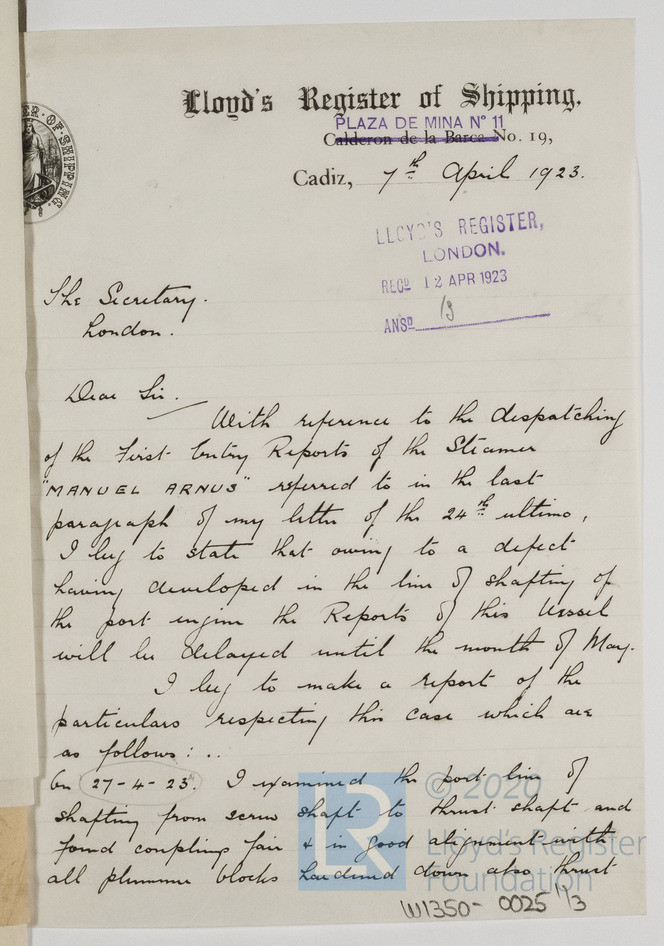 Lloyd's Register of Shipping.
PLAZA DE MINA Nº 11
Calderon de la Barca No. 19,
Cadiz, 7th April 1923.
R·OF·SHIPPING.
LLOYD'S REGISTER,
LONDON.
RECD 12 APR 1923
ANSD 13
The Secretary.
London.
Dear Sir.
With reference to the despatching
of the First Entry Reports of the Steamer
"MANUEL ARNUS" referred to in the last
paragraph of my letter of the 24th ultimo,
I beg to state that owing to a defect
having developed in the line of shafting of
the port engine the Reports of this Vessel
will be delayed until the month of May.
I beg to make a report of the
particulars respecting this case which are
as follows: ..
On 27-4-23. I examined the port line of
shafting from screw shaft to thrust shaft and
found coupling fair & in good alignment with
all plummer blocks hardened down also thrust
LR
© 2020
Lloyd's Register
Foundation
W1350-0025 1/3